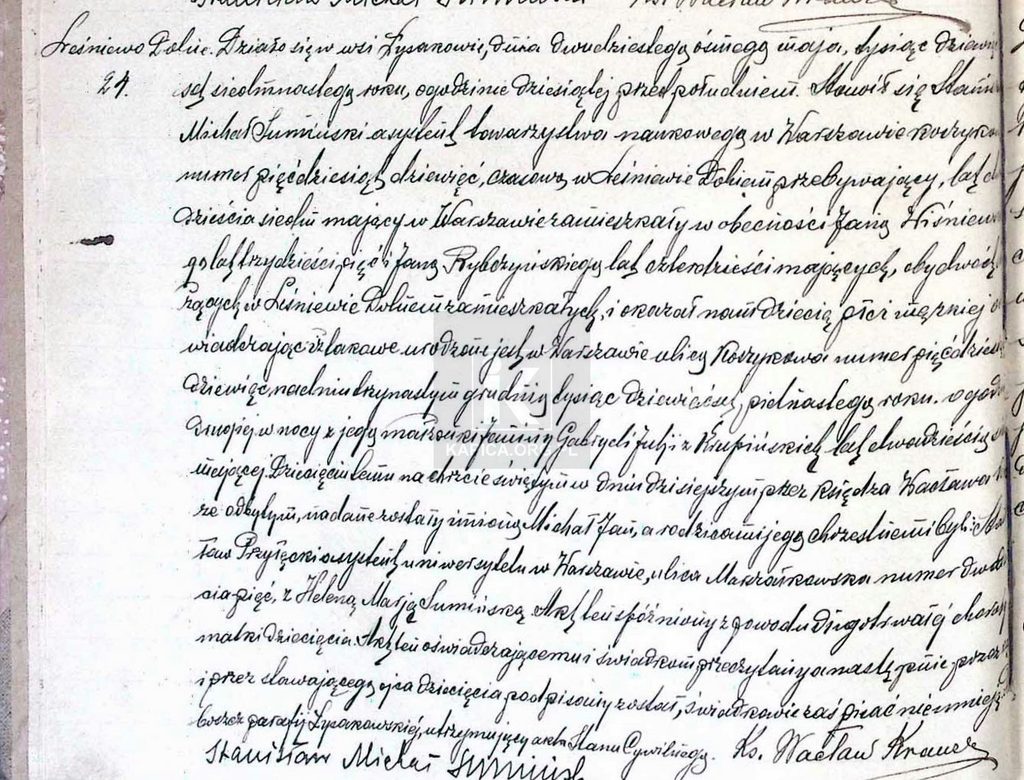 Stanisław Michał Sumiński Ks. Wacław Krauze
Leśniewo Dolne. Działo się w wsi Łysakowie, dnia dwudziestego ósmego maja, tysiąc dziewię
24. set siedmnastego roku, o godzinie dziesiątej przed południem. Stawił się Stanis
Michał Sumiński asystent towarzystwa naukowego w Warszawie Koszyko
numer pięćdziesiąt dziewięć, czasowo w Leśniewie Dolnem przebywający, lat d
dzieścia siedm mający w Warszawie zamieszkały w obecności Jana Wiśniew
go lat trzydzieści pięć i Jana Rybczyńskiego lat czterdzieści mających, obydwóch
rzących w Leśniewie Dolnem zamieszkałych, i okazał nam dziecię płci męzkiej o
wiadczając iż takowe urodzone jest w Warszawie ulicy Koszykowa numer pięćdzies
dziewięć, na dniu trzynastym grudnia tysiąc dziewięćset, pietnastego roku. o godz
drugiej w nocy z jego małżonki Janiny Gabryeli Julji z Krupińskich, lat dwadzieścia
mającej. Dziecięciu temu na chrzcie świętym w dniu dzisiejszym przez Księdza Wacława
ze odbytym, nadane zostały imiona Michał Jan, a rodzicami jego chrzestnemi byli: St
ław Przyłęcki asystent uniwersytetu w Warszawie, ulica Marszałkowska numer dwdz
cia pięć, z Heleną Marją Sumińską. Akt ten spóźniony z powodu długotrwałej choroby
matki dziecięcia. Akt ten oświadczającemu i świadkom przeczytany a następnie przez
i przez stawającego ojca dziecięcia podpisany został, świadkowie zaś pisać nieumieją
boszcz parafji Łysakowskiej, utrzymujący akta Stanu Cywilnego. Ks. Wacław Krauze
Stanisław Michał Sumiński
K
KAPICA.ORG.PL